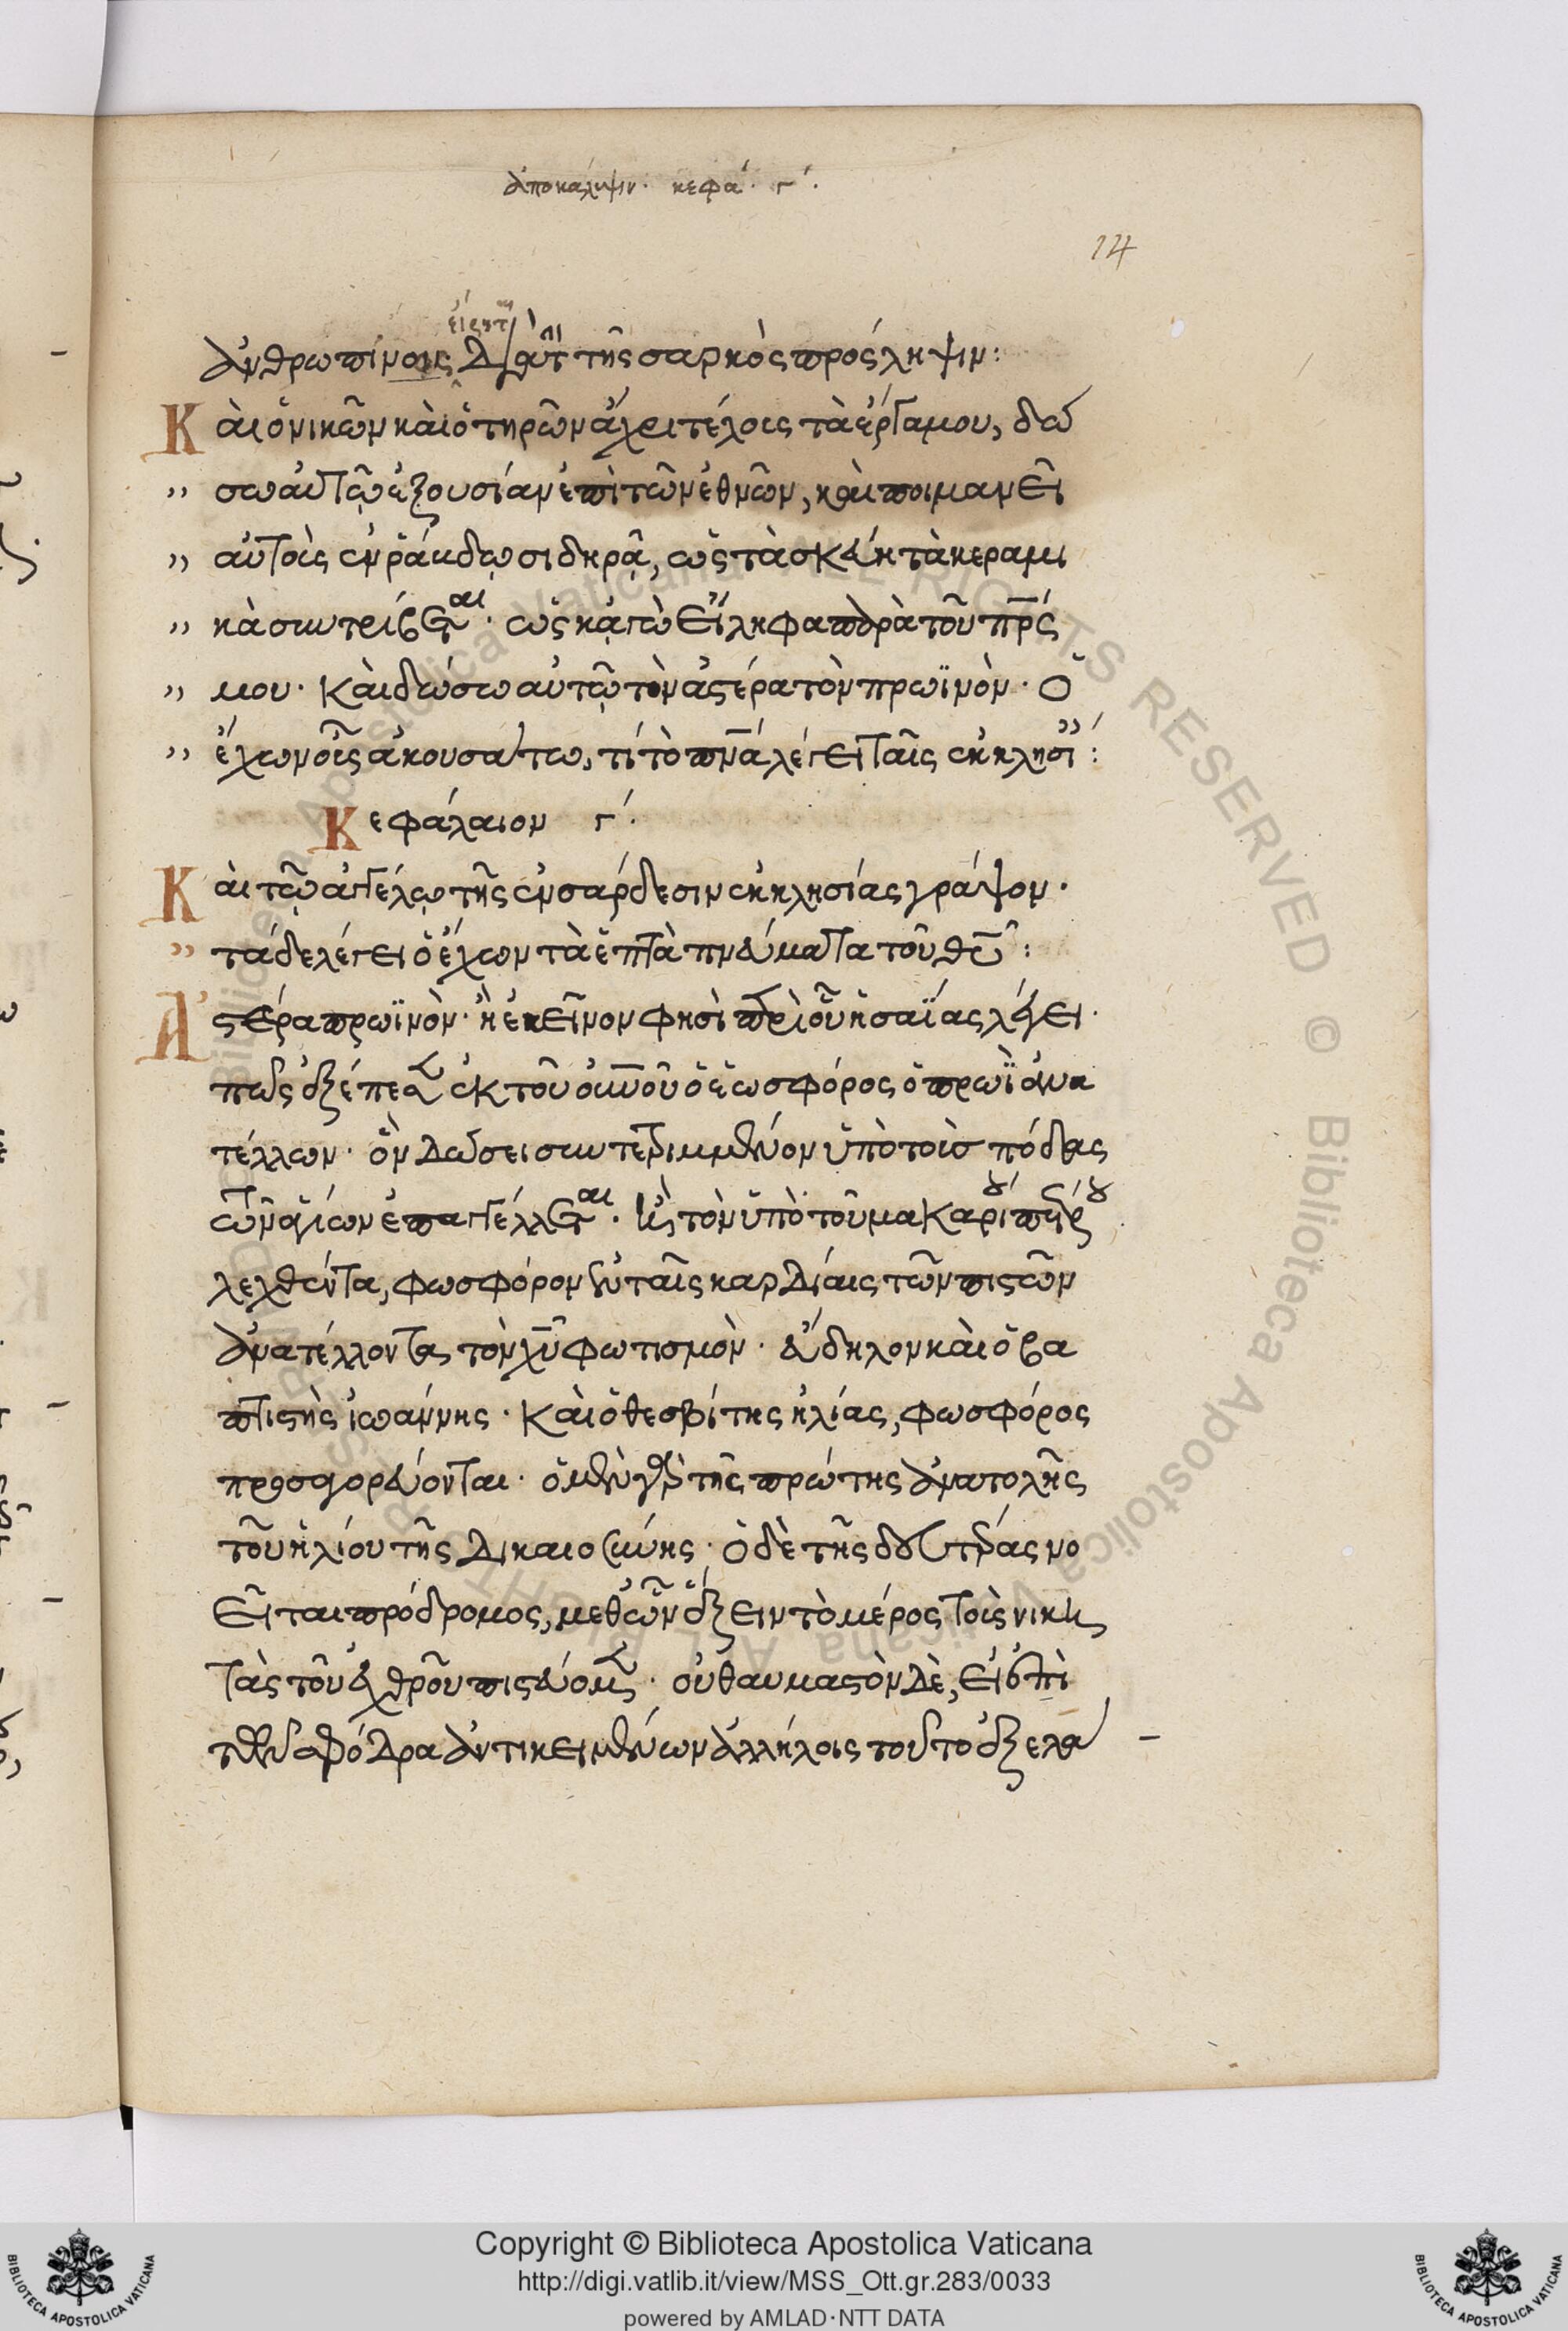 ἀποκάλυψιν. κεφά. γ΄.
14
ἀνθρωπίνοις διὰ τ τῆς σαρκὸς πρόσληψιν:
Καὶ ὁ νικῶν καὶ ὁ τηρῶν ἄχρι τέλους τὰ ἔργα μου, δώ
σω αὐτῷ ἐξουσίαν ἐπὶ τῶν ἐθνῶν, καὶ ποιμανεῖ
αὐτοὺς ἐν ῥάβδῳ σιδηρᾷ, ὡς τὰ σκεύη τὰ κεραμι
κὰ συντρίβεται· ὡς κἀγὼ εἴληφα παρὰ τοῦ πρς
μου· Καὶ δώσω αὐτῷ τὸν ἀστέρα τὸν πρωϊνὸν· Ὁ
ἔχων οὖς ἀκουσάτω, τί τὸ πνα λέγει ταῖς ἐκκλησι:
Κεφάλαιον γ΄.
Καὶ τῷ ἀγγέλῳ τῆς ἐν σάρδεσιν ἐκκλησίας γράψον·
τάδε λέγει ὁ ἔχων τὰ ἑπτὰ πνεύματα τοῦ θυ:
Ἀστέρα πρωϊνὸν· ἢ ἐκεῖνον φησὶ περὶ οὗ ἡσαΐας λέγει·
πῶς ἐξέπεσεν ἐκ τοῦ οὐνοῦ ὁ ἑωσφόρος ὁ πρωῒ ἀνα
τέλλων· ὃν δώσει συντετριμμένον ὑπὸ τοὺς πόδας
τῶν ἁγίων ἐπαγγέλλεται· ἢ τὸν ὑπὸ τοῦ μακαρίου πέτρου
λεχθέντα, φωσφόρον ἐν ταῖς καρδίαις τῶν πιστῶν
ἀνατέλλοντα, τὸν χυ φωτισμὸν· εὔδηλον καὶ ὁ βα
πτιστὴς ἰωάννης· Καὶ ὁ θεσβίτης ἠλίας, φωσφόρος
προσαγορεύονται· ὁ μὲν γὰρ τῆς πρώτης ἀνατολῆς
τοῦ ἡλίου τῆς δικαιοσύνης· ὁ δὲ τῆς δευτέρας νο
εῖται πρόδρομος, μεθ ὧν ἕξειν τὸ μέρος τοὺς νικη
τὰς τοῦ ἐχθροῦ πιστεύομεν· οὐ θαυμαστὸν δὲ, εἰ ἐπὶ
τῶν σφόδρα ἀντικειμένων ἀλλήλοις τοῦτο ἐξελά
Copyright © Biblioteca Apostolica Vaticana
http://digi.vatlib.it/view/MSS_Ott.gr.283/0033
powered by AMLAD·NTT DATA